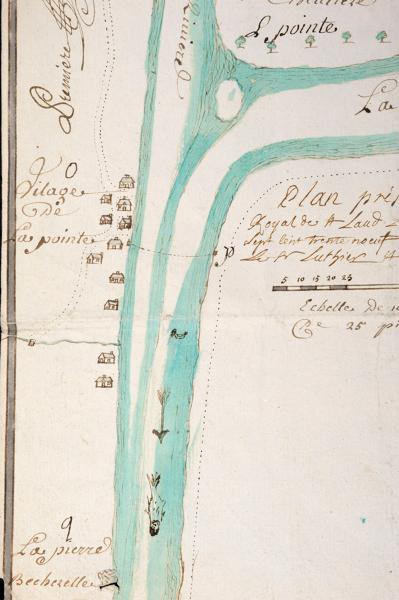 Premiere
Riviere
La pointe
La
O
Vilage
De
La pointe
P
Plan pris
Royal de St Laud
Sept Cent trente neuf
Le Sr Luthier
5 10 15 20 25
Echelle de
Ce 25
q
La pierre
Becherelle